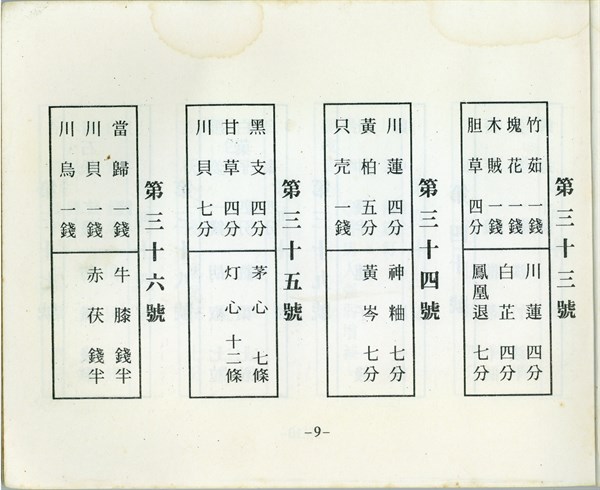 第三十三號
竹茹 一錢
塊花 一錢
木賊 一錢
胆草 四分
川蓮 四分
白芷 四分
鳳凰退 七分
第三十四號
川蓮 四分
黃柏 五分
只壳 一錢
神粬 七分
黃岑 七分
第三十五號
黑支 四分
甘草 四分
川貝 七分
茅心 七條
灯心 十二條
第三十六號
當歸 一錢
川貝 一錢
川烏 一錢
牛膝 錢半
赤茯 錢半
-9-